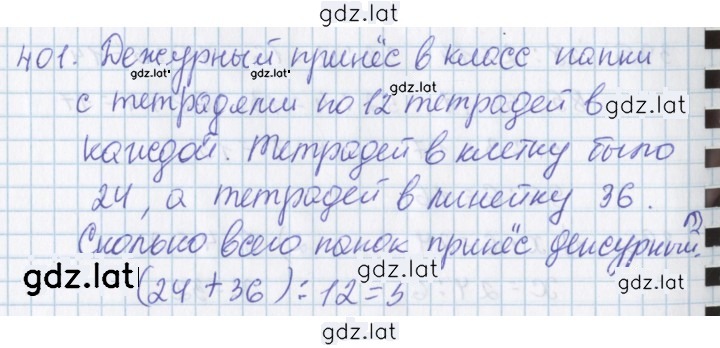 gdz.lat
401. Дежурный принёс в класс папки
gdz.lat gdz.lat gdz.lat
с тетрадями по 12 тетрадей в
gdz.lat
каждой. Тетрадей в клетку было
24, а тетрадей в линейку 36.
Сколько всего папок принёс дежурный?
gdz.lat gdz.lat gdz.lat
(24 + 36) : 12 = 5
gdz.lat gdz.lat
gdz.lat